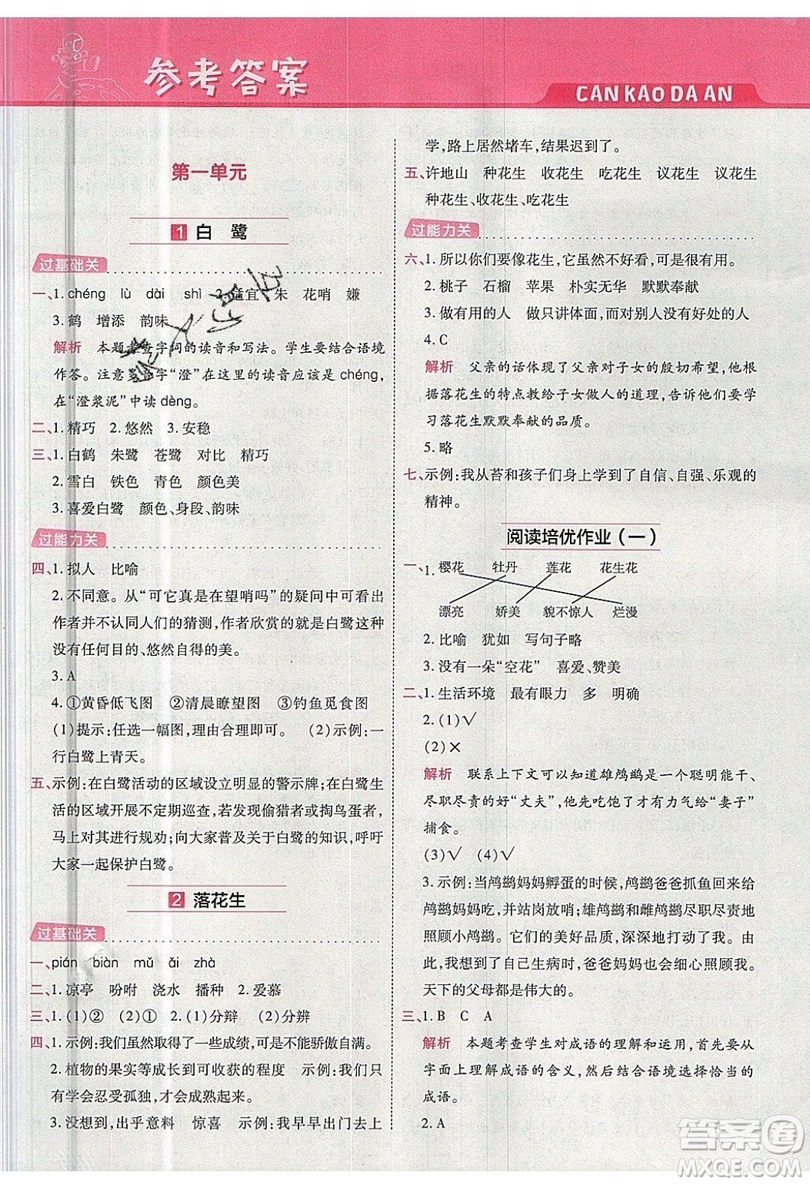 参考答案
CAN KAO DA AN
第一单元
1 白 鹭
过基础关
一、1. chéng lù dài shì 2. 适宜 朱 花哨 嫌
3. 鹤 增添 韵味
解析 本题考查字词的读音和写法。学生要结合语境
作答。注意多音字“澄”在这里的读音应该是 chéng,
在“澄浆泥”中读 dèng。
二、1. 精巧 2. 悠然 3. 安稳
三、1. 白鹤 朱鹭 苍鹭 对比 精巧
2. 雪白 铁色 青色 颜色美
3. 喜爱白鹭 颜色、身段、韵味
过能力关
四、1. 拟人 比喻
2. 不同意。从“可它真是在望哨吗”的疑问中可以看出
作者并不认同人们的猜测,作者欣赏的就是白鹭这
没有任何目的、悠然自得的美。
3. A
4. ①黄昏低飞图 ②清晨瞭望图 ③钓鱼觅食图
(1)提示:任选一幅图,理由合理即可。 (2)示例:一
行白鹭上青天。
五、示例:在白鹭活动的区域设立明显的警示牌;在白鹭生
活的区域开展不定期巡查,发现偷猎者或掏鸟蛋者,
马上对其进行规劝;向大家普及关于白鹭的知识,呼吁
大家一起保护白鹭。
2 落花生
过基础关
一、pián biàn mǔ ǎi zhà
二、1. 凉亭 吩咐 浇水 播种 2. 爱慕
三、1. (1)② (2)① 2. (1)分辩 (2)分辨
四、1. 示例:我们虽然取得了一些成绩,可不能骄傲自满。
2. 植物的果实等成长到可收获的程度 示例:我们要
学会忍受孤独,才可能成熟起来。
3. 没想到,出乎意料 惊喜 示例:我早早出门去上
学,路上居然堵车,结果迟到了。
五、许地山 种花生 收花生 吃花生 议花生 议花生
种花生、收花生、吃花生
过能力关
六、1. 所以你们要像花生,它虽然不好看,可是很有用。
2. 桃子 石榴 苹果 朴实无华 默默奉献
3. 做有用的人 做只讲体面,而对别人没有好处的人
4. C
解析 父亲的话体现了父亲对子女的殷切希望,他根
据落花生的特点教给子女做人的道理,告诉他们要
学习落花生默默奉献的品质。
5. 略
七、示例:我从苔和孩子们身上学到了自信、自强、乐观的
精神。
阅读培优作业(一)
一、1. 樱花 牡丹 莲花 花生花
漂亮 娇美 貌不惊人 烂漫
2. 比喻 犹如 写句子略
3. 没有一朵“空花” 喜爱、赞美
二、1. 生活环境 最有眼力 多 明确
2. (1)√
(2)×
解析 联系上下文可以知道雄鸬鹚是一个聪明能干、
尽职尽责的好“丈夫”,他才有力气给“妻子”
捕食。
(3)√ (4)√
3. 示例:当鸬鹚妈妈孵蛋的时候,鸬鹚爸爸抓鱼回来给
鸬鹚妈妈吃,并站岗放哨;雄鸬鹚喂养雌鸬鹚,也非常
尽职尽责。这些都让我非常感动,深深地为鸬鹚爸爸
的行为所折服。同时,我也想到,爸爸妈妈多伟大啊!
天下的父母都是伟大的。
三、1. B C A
解析 本题考查学生对成语的理解和运用,首先要从
字面上理解成语的含义,然后结合语境选择恰当的
成语。
2. A
答案圈
MXQE.COM